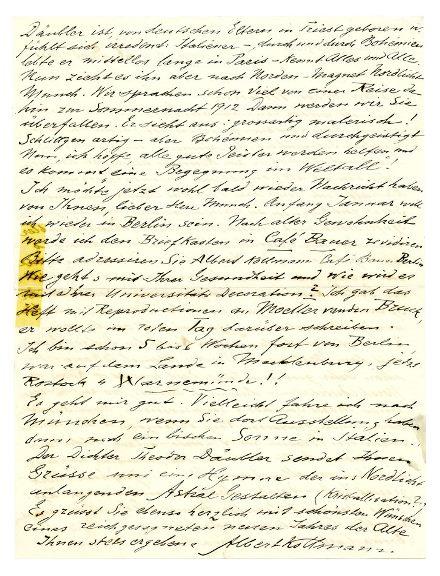 Däubler ist, von deutschen Eltern in Triest geboren u.
fühlt sich irredent. Italiener – durch und durch Bohémien
lebte er mittellos lange in Paris – kennt Alles und Alle
Nun zieht es ihn aber nach Norden – Magnet Nordlicht
Munch. Wir sprachen schon viel von einer Reise da
hin zur Sommernacht 1912 Dann werden wir Sie
überfallen. Er sieht aus: grossartig malerisch!
Schlittgen artig – aber Bohémien und durchgeistigt
Nun, ich hoffe, alle guten Geister werden helfen und
es kommt eine Begegnung im Weltall!
Ich möchte jetzt wohl bald wieder Nachricht haben
von Ihnen, lieber Herr Munch. Anfang Januar will
ich wieder in Berlin sein. Nach alter Gewohnheit
werde ich den Briefkasten in Café Bauer
Bitte adressieren Sie Albert Kollmann Café Bauer Berlin
Wie geht's mit Ihrer Gesundheit und wie wird es
mit der Universitäts Decoration? Ich gab das
Heft mit Reproductionen an Moeller van den Bruck,
er wollte im Tag darüber schreiben.
Ich bin schon 5 Wochen fort von Berlin
war auf dem Lande in Mecklenburg, jetzt
Rostock u Warnemünde!!
Es geht mir gut. Vielleicht fahre ich nach
München, wenn Sie dort Ausstellung haben
dann noch ein bischen Sonne in Italien.
Der Dichter Theodor Däubler sendet Ihnen
Grüsse und eine Hymne der ins Nordlicht
Astral Gestalten (Kristallisation?)
Es grüsst Sie ebenso herzlich mit schönsten Wünschen
eines reichgesegneten neuen Jahres der Alte
Ihnen stets ergebene Albert Kollmann.